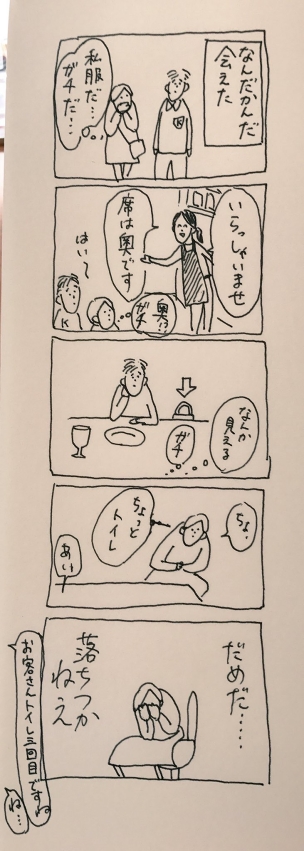 なんだかんだ
会えた
私服だ…
ガチだ…
K
いらっしゃいませ
席は奥です
奥!?
ガチ
はい〜
K
なんか
見える
ガチ
ちょ…
ちょっと
トイレ
あい
だめだ……
落ちつか
ねえ
お客さんトイレ三回目ですね
ね…